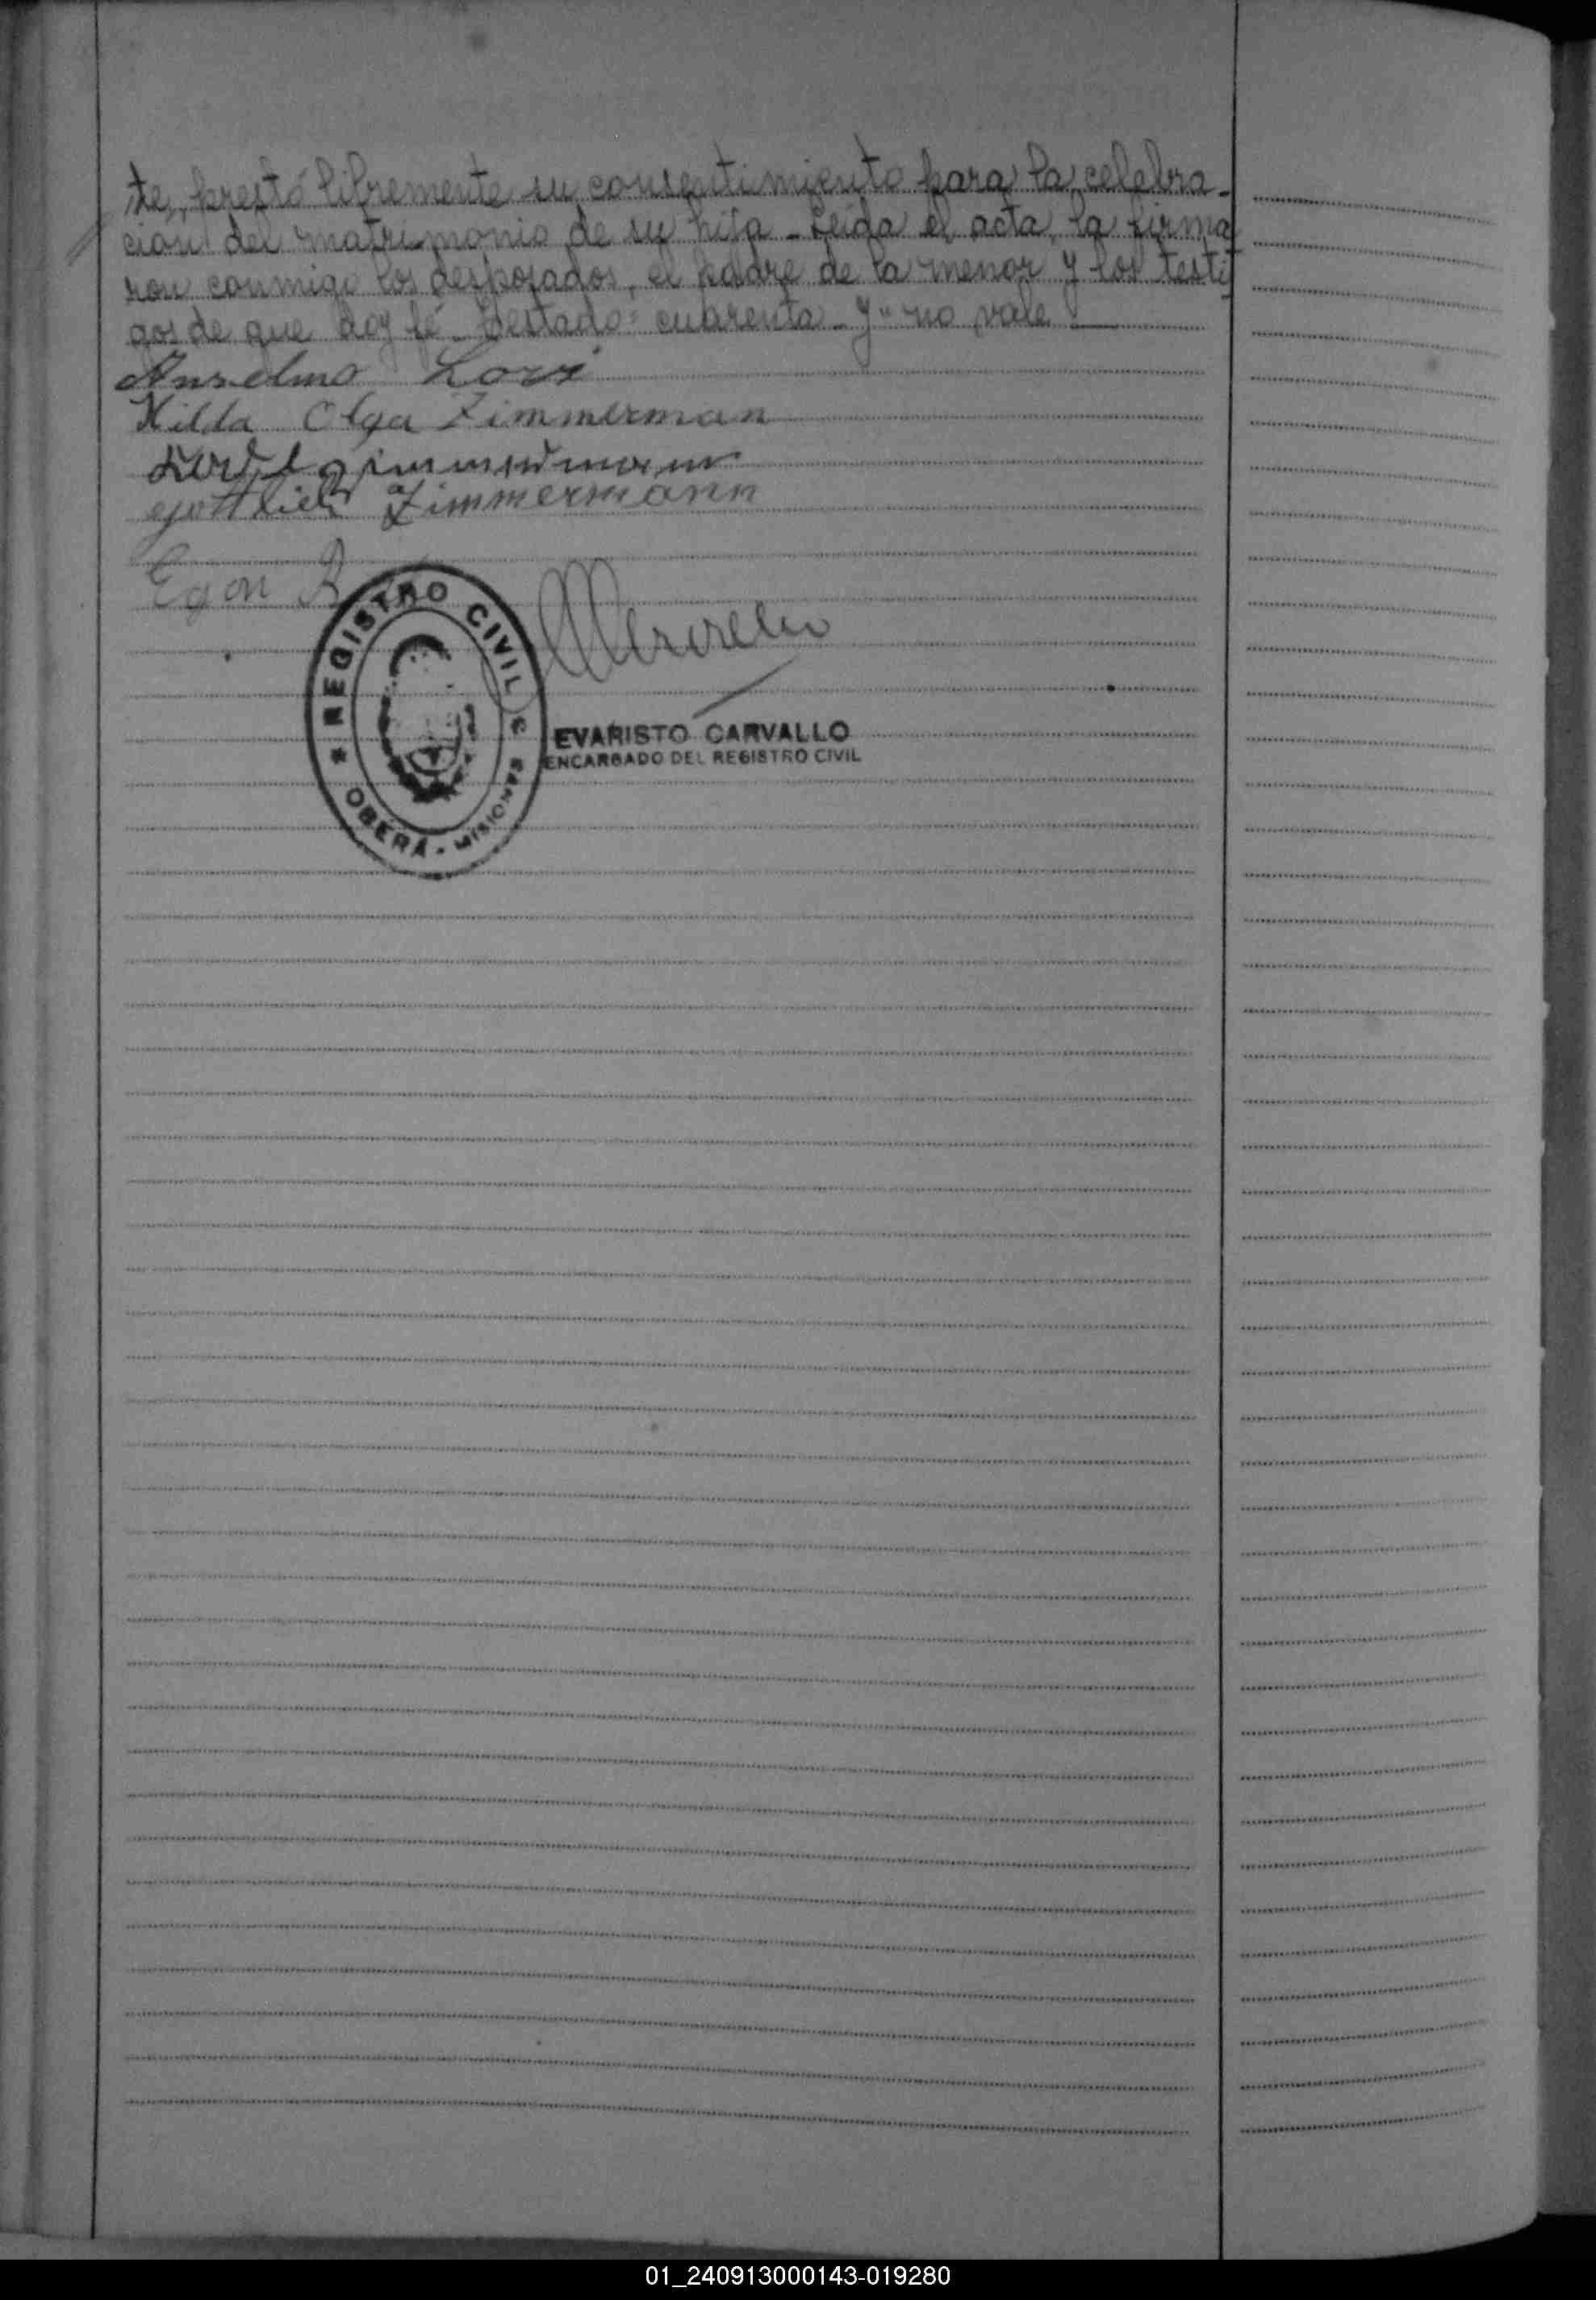 te, prestó libremente su consentimiento para la celebra-
cion del matrimonio de su hija - Leida el acta, la firma
ron conmigo los desposados, el padre de la menor y los testi
gos de que doy fé - Testado: cuarenta - y " no vale
Anselmo
Hilda Olga Zimmerman
Zimmermann
Gottlieb Zimmermann
Egon
REGISTRO CIVIL
OBERA - MISIONES
EVARISTO CARVALLO
ENCARGADO DEL REGISTRO CIVIL
01_240913000143-019280